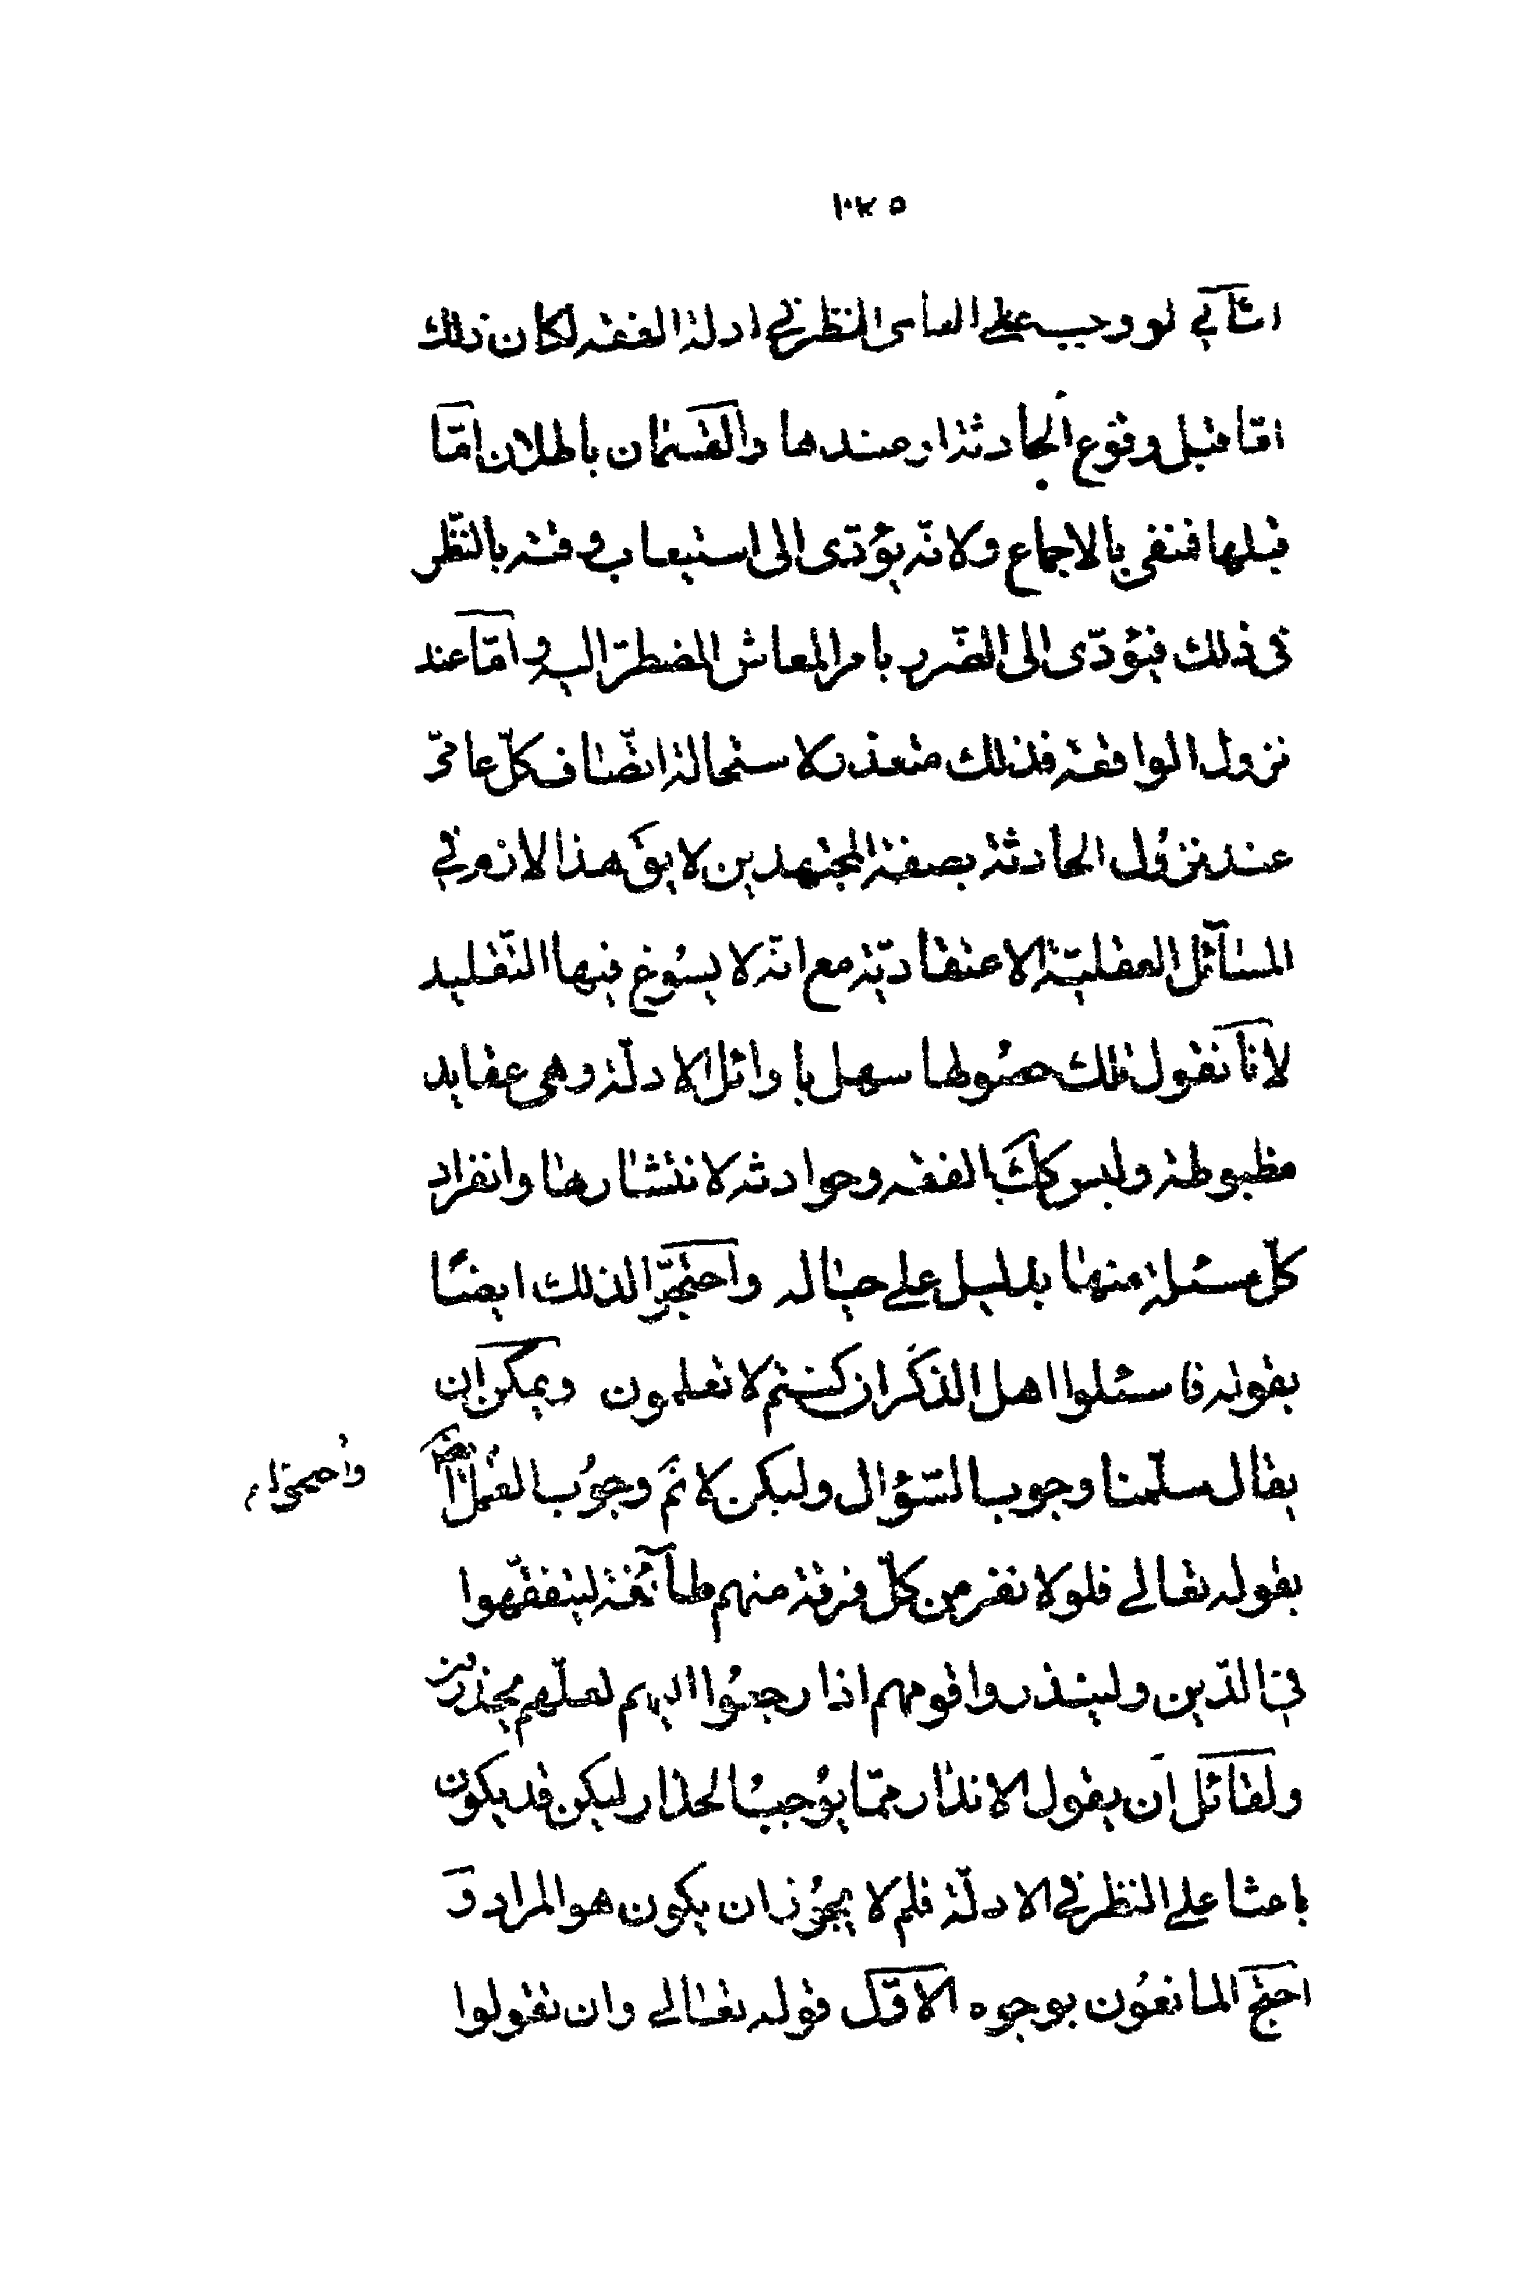 ١٠٢٥
الثاني لو وجب على العامى النظر في ادلة الفقه لكان ذلك
امّا قبل وقوع الحادثة او عندها والقسمان باطلان امّا
قبلها فنفى بالاجماع ولانّه يؤدّى الى استيعاب وقته بالنّظر
فى ذلك فيؤدّى الى الضّرر بامر المعاش المضطرّ اليه وامّا عند
نزول الواقعة فذلك متعذر لاستحالة اتّصاف كلّ عامىّ
عند نزول الحادثة بصفة المجتهدين لا يقَ هذا لازم في
المسآئل العقليّة الاعتقاديّة مع انّه لا يسوغ فيها التّقليد
لانّا نقول تلك حصُولها سهل باوائل الادلّة وهى عقايد
مظبوطة وليس كك الفقه وحوادثه لانتشارها وانفراد
كلّ مسئلة منها بدليل على حياله واحتجّوا لذلك ايضًا
بقوله فاسئلوا اهل الذكر ان كنتم لا تعلمون ويمكن ان
يقال سلّمنا وجوب السّؤال وليكن لانَم وجوُب العمل
واحتجوا م
بقوله تعالى فلولا نفر من كلّ فرقة منهم طآئفة ليتفقّهوا
في الدّين ولينذروا قومهم اذا رجعوا اليهم لعلّهم يحذرون
ولقائل ان يقول الانذار ممّا يوُجب الحذار ليكن قد يكون
باعثا على النظر في الادلّة فلم لا يجوُز ان يكون هو المراد وَ
احتج المانعُون بوجوه الاوّل قوله تعالى وان تقولوا